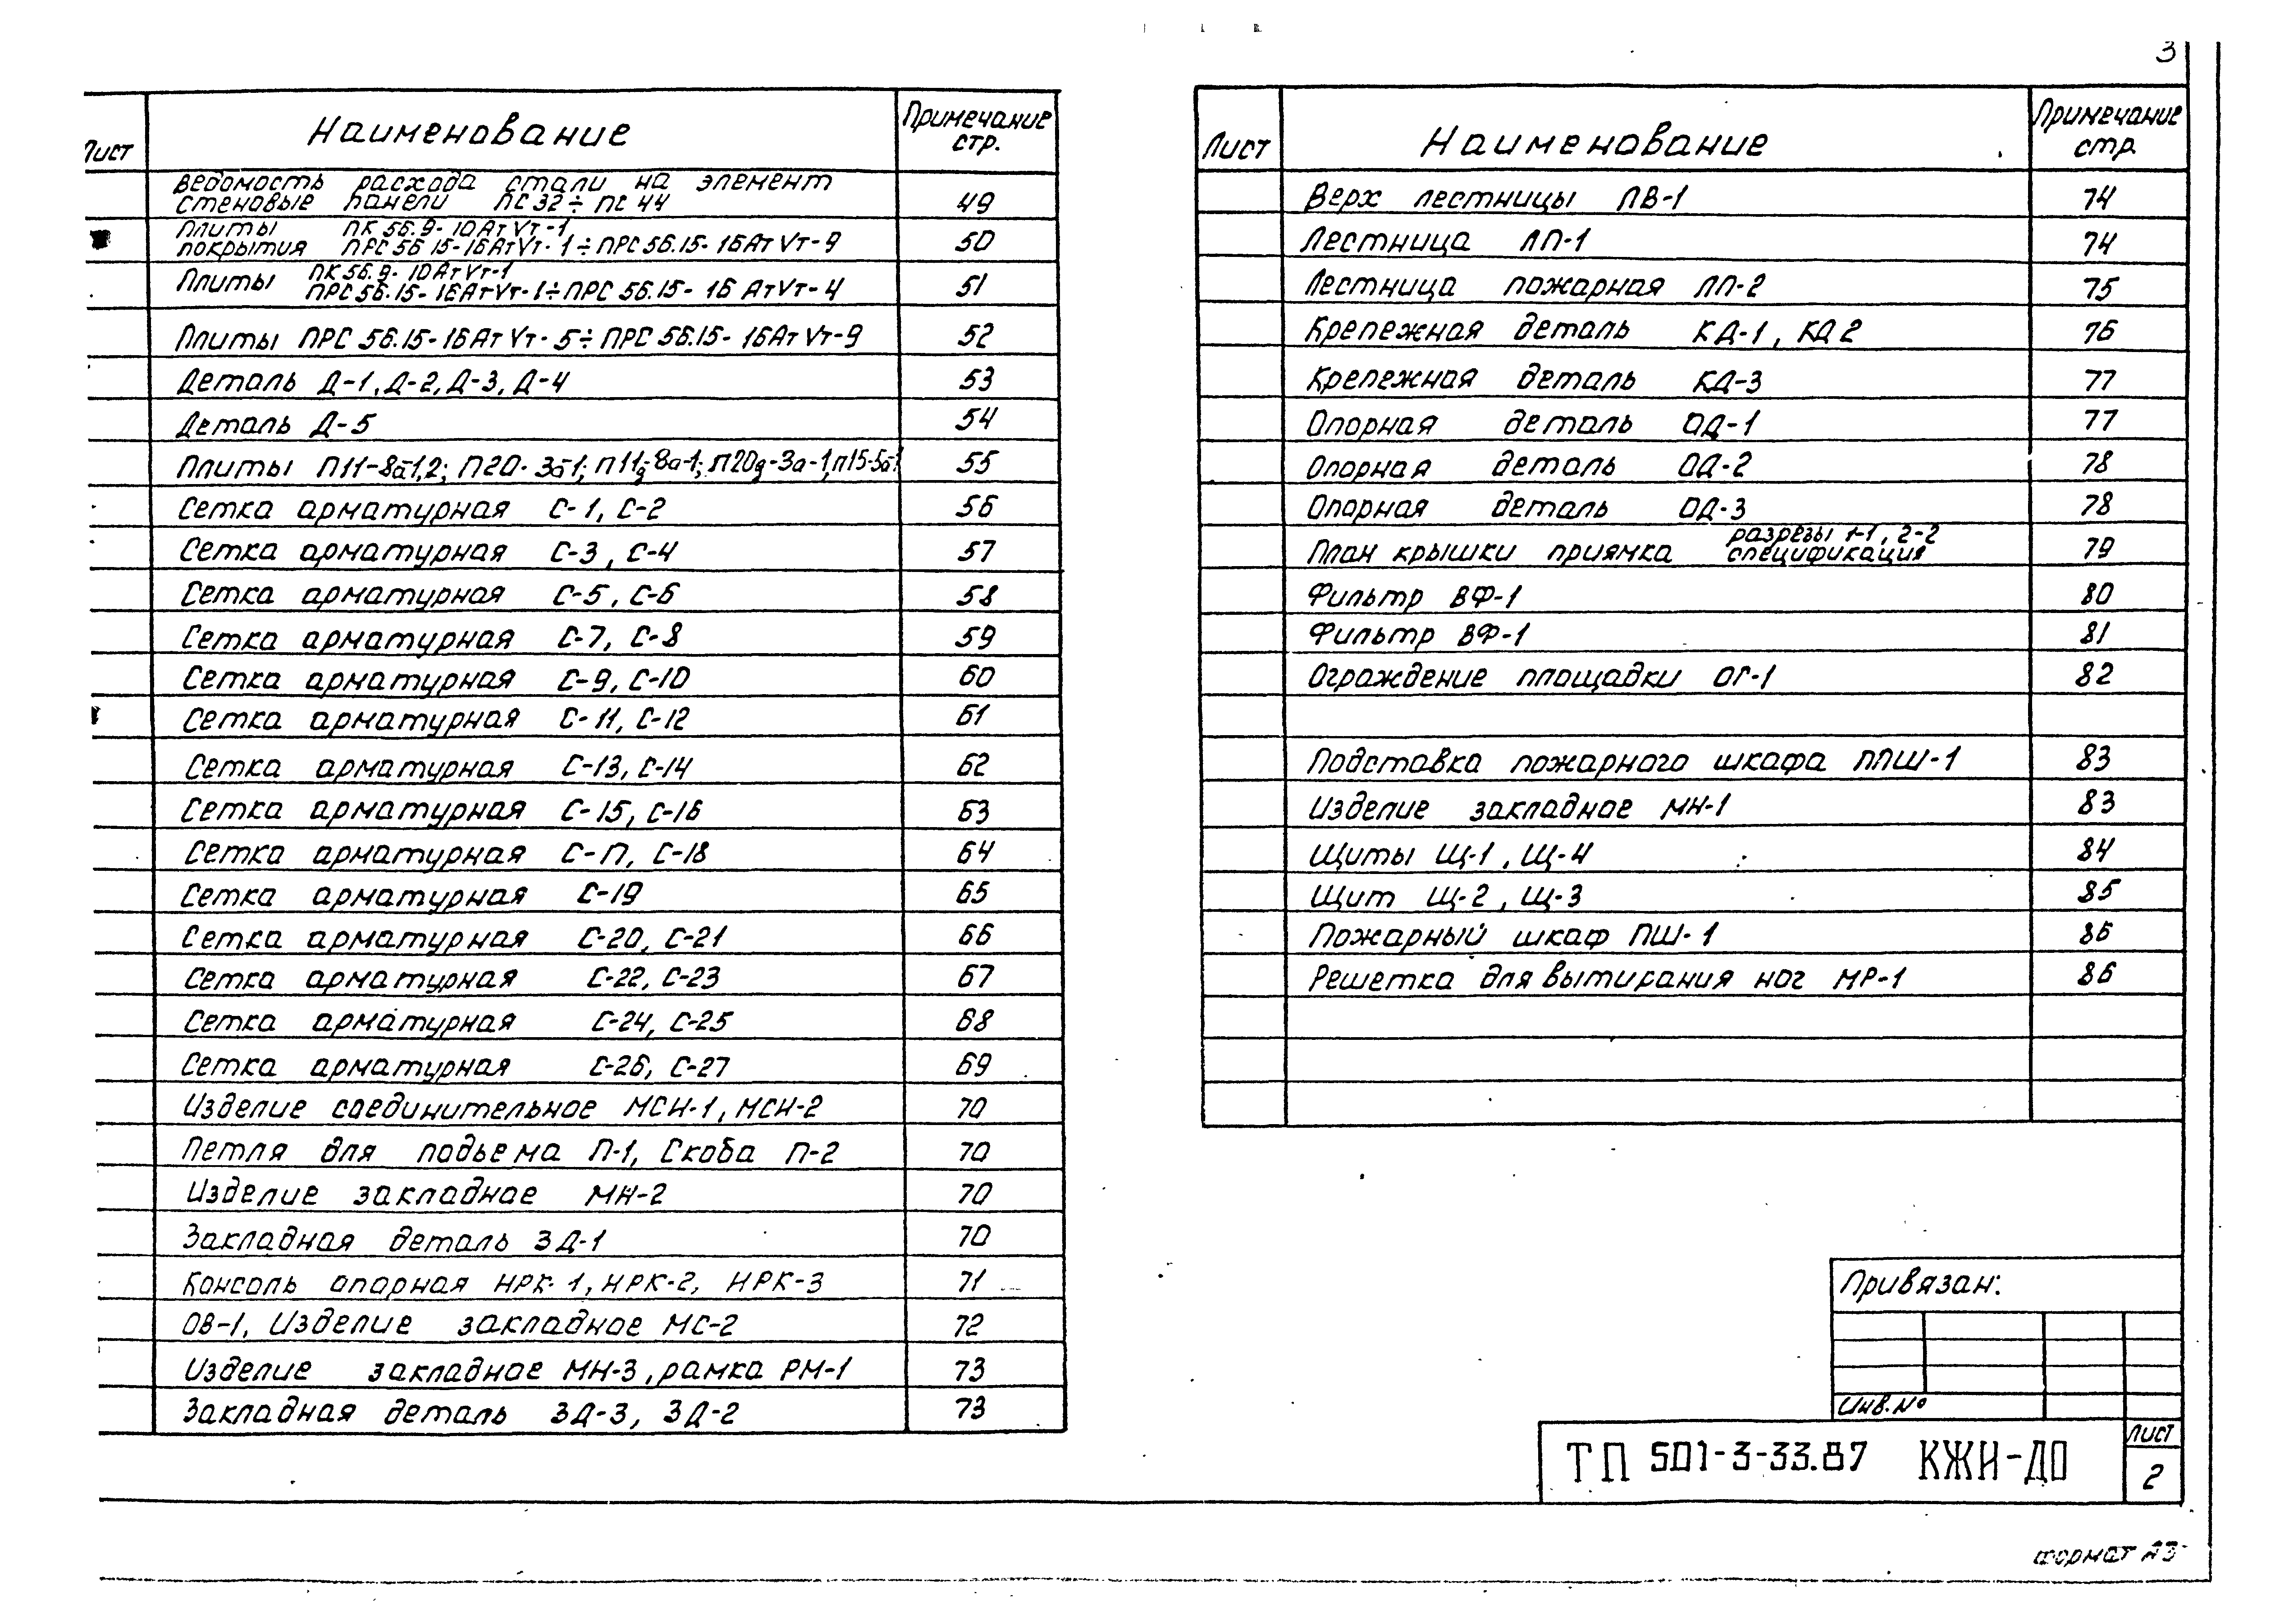 3
Лист Наименование Примечание стр.
Ведомость расхода стали на элемент
стеновые панели ПС 32 ÷ ПС 44 49
Плиты ПК 56.9-10АтVт-1
покрытия ПРС 56 15-16АтVт-1 ÷ ПРС 56.15-16АтVт-9 50
Плиты ПК 56.9-10АтVт-1
ПРС 56.15-16АтVт-1 ÷ ПРС 56.15-16АтVт-4 51
Плиты ПРС 56.15-16АтVт-5 ÷ ПРС 56.15-16АтVт-9 52
Деталь Д-1, Д-2, Д-3, Д-4 53
Деталь Д-5 54
Плиты П11-8а-1,2; П20-3а-1; П11д-8а-1; П20д-3а-1, П15-5а-1 55
Сетка арматурная С-1, С-2 56
Сетка арматурная С-3, С-4 57
Сетка арматурная С-5, С-6 58
Сетка арматурная С-7, С-8 59
Сетка арматурная С-9, С-10 60
Сетка арматурная С-11, С-12 61
Сетка арматурная С-13, С-14 62
Сетка арматурная С-15, С-16 63
Сетка арматурная С-17, С-18 64
Сетка арматурная С-19 65
Сетка арматурная С-20, С-21 66
Сетка арматурная С-22, С-23 67
Сетка арматурная С-24, С-25 68
Сетка арматурная С-26, С-27 69
Изделие соединительное МСН-1, МСН-2 70
Петля для подьема П-1, Скоба П-2 70
Изделие закладное МН-2 70
Закладная деталь ЗД-1 70
Консоль опорная НРК-1, НРК-2, НРК-3 71
ОВ-1, Изделие закладное МС-2 72
Изделие закладное МН-3, рамка РМ-1 73
Закладная деталь ЗД-3, ЗД-2 73
Лист Наименование Примечание стр.
Верх лестницы ЛВ-1 74
Лестница ЛП-1 74
Лестница пожарная ЛП-2 75
Крепежная деталь КД-1, КД 2 76
Крепежная деталь КД-3 77
Опорная деталь ОД-1 77
Опорная деталь ОД-2 78
Опорная деталь ОД-3 78
План крышки приямка разрезы 1-1, 2-2
спецификация 79
Фильтр ВФ-1 80
Фильтр ВФ-1 81
Ограждение площадки ОГ-1 82
Подставка пожарного шкафа ППШ-1 83
Изделие закладное МН-1 83
Щиты Щ-1, Щ-4 84
Щит Щ-2, Щ-3 85
Пожарный шкаф ПШ-1 86
Решетка для вытирания ног МР-1 86
Привязан:
Инв. №
ТП 501-3-33.87 КЖИ-ДО
Лист
2
формат А3